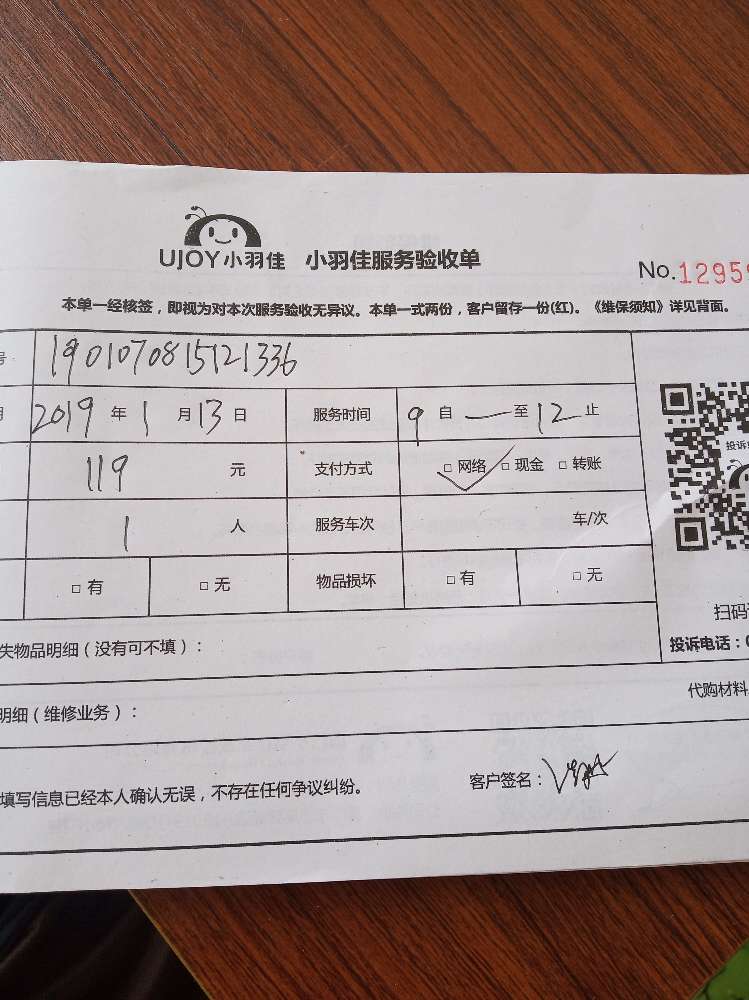 UJOY小羽佳 小羽佳服务验收单
No.1295
本单一经核签，即视为对本次服务验收无异议。本单一式两份，客户留存一份(红)。《维保须知》详见背面。
号 1901070815121336
2019 年 1 月 13 日 服务时间 9 自 — 至 12 止
119 元 支付方式 □ 网络 □ 现金 □ 转账
1 人 服务车次 车/次
□ 有 □ 无 物品损坏 □ 有 □ 无
投诉
扫码
失物品明细（没有可不填）：
投诉电话：0
明细（维修业务）：
代购材料
填写信息已经本人确认无误，不存在任何争议纠纷。
客户签名：